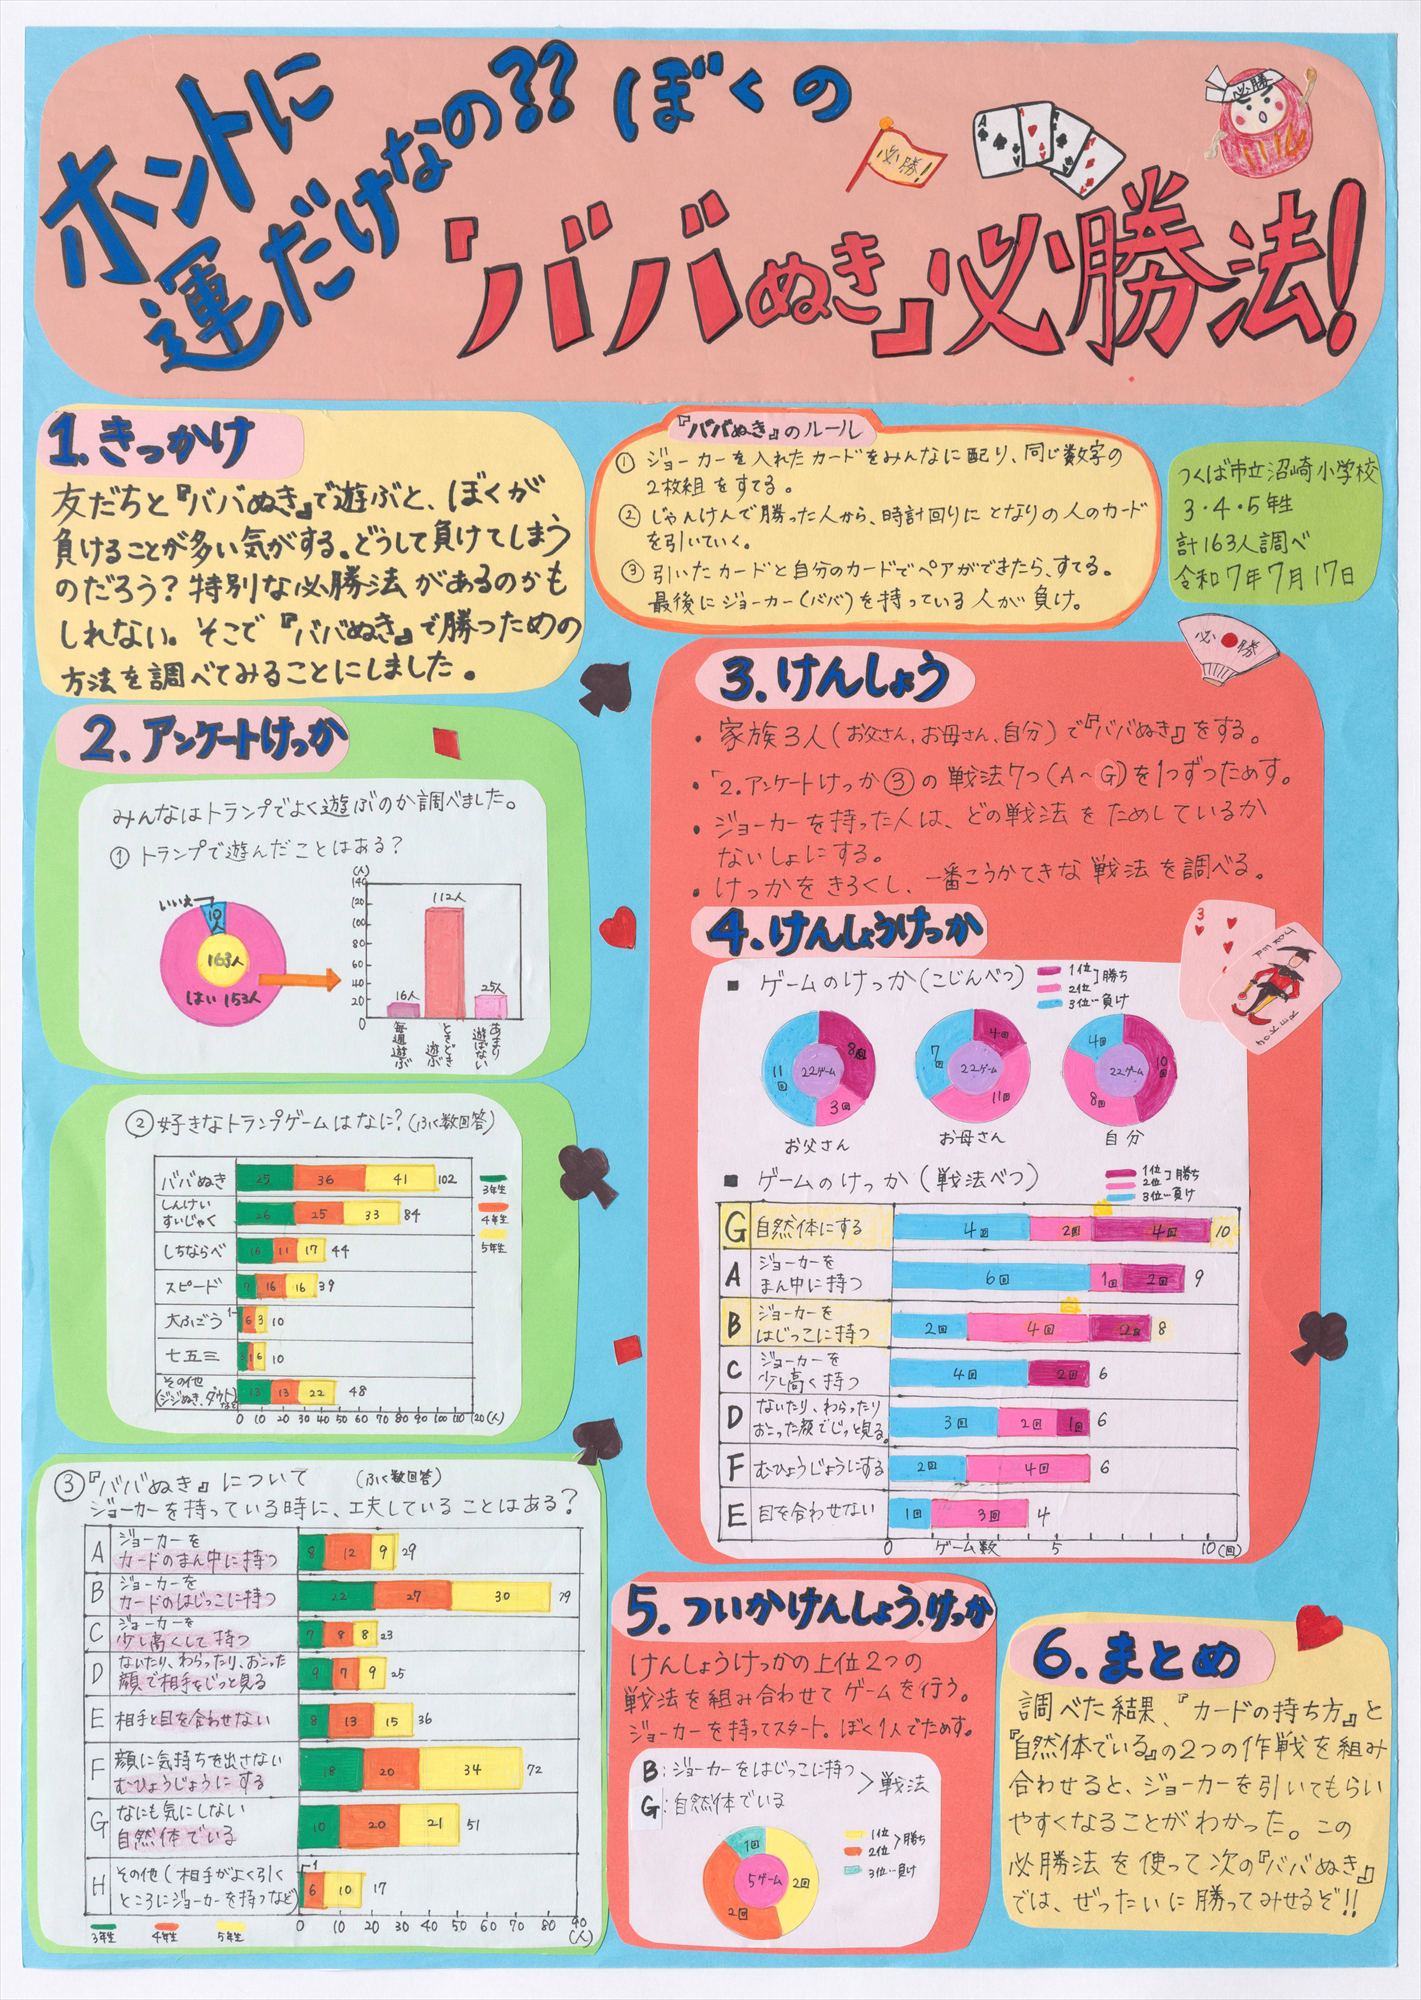 ホントに
運だけなの??
ぼくの
『ババぬき』必勝法!
必勝!
必勝
1.きっかけ
友だちと『ババぬき』で遊ぶと、ぼくが
負けることが多い気がする。どうして負けてしまう
のだろう?特別な必勝法があるのかも
しれない。そこで『ババぬき』で勝つための
方法を調べてみることにしました。
『ババぬき』のルール
① ジョーカーを入れたカードをみんなに配り、同じ数字の
2枚組をすてる。
② じゃんけんで勝った人から、時計回りにとなりの人のカード
を引いていく。
③ 引いたカードと自分のカードでペアができたら、すてる。
最後にジョーカー(ババ)を持っている人が負け。
つくば市立沼崎小学校
3・4・5年生
計163人調べ
令和7年7月17日
必勝
2.アンケートけっか
みんなはトランプでよく遊ぶのか調べました。
① トランプで遊んだことはある?
いいえ
10人
163人
はい 153人
(人)
140
120
100
80
60
40
20
0
16人
112人
25人
毎週遊ぶ
ときどき遊ぶ
あまり遊ばない
② 好きなトランプゲームはなに?(ふく数回答)
ババぬき 25 36 41 102
しんけいすいじゃく 26 25 33 84
しちならべ 16 11 17 44
スピード 7 16 16 39
大ふごう 1 6 3 10
七五三 3 1 6 10
その他(ジジぬき、ダウトなど) 13 13 22 48
0 10 20 30 40 50 60 70 80 90 100 110 120(人)
3年生
4年生
5年生
③『ババぬき』について (ふく数回答)
ジョーカーを持っている時に、工夫していることはある?
A ジョーカーを
カードのまん中に持つ 8 12 9 29
B ジョーカーを
カードのはじっこに持つ 22 27 30 79
C ジョーカーを
少し高くして持つ 7 8 8 23
D ないたり、わらったり、おこった
顔で相手をじっと見る 9 7 9 25
E 相手と目を合わせない 8 13 15 36
F 顔に気持ちを出さない
むひょうじょうにする 18 20 34 72
G なにも気にしない
自然体でいる 10 20 21 51
H その他(相手がよく引く
ところにジョーカーを持つなど) 1 6 10 17
0 10 20 30 40 50 60 70 80 90
(人)
3年生 4年生 5年生
3.けんしょう
・家族3人(お父さん、お母さん、自分)で『ババぬき』をする。
・「2.アンケートけっか③の戦法7つ(A~G)を1つずつためす。
・ジョーカーを持った人は、どの戦法をためしているか
ないしょにする。
・けっかをきろくし、一番こうかてきな戦法を調べる。
4.けんしょうけっか
3
3
JOKER
JOKER
■ ゲームのけっか(こじんべつ)
1位
2位
勝ち
3位…負け
22ゲーム
8回
3回
11回
お父さん
22ゲーム
4回
11回
7回
お母さん
22ゲーム
10回
8回
4回
自分
■ ゲームのけっか(戦法べつ)
1位
2位
勝ち
3位…負け
G 自然体にする 4回 2回 4回 10
A ジョーカーを
まん中に持つ 6回 1回 2回 9
B ジョーカーを
はじっこに持つ 2回 4回 2回 8
C ジョーカーを
少し高く持つ 4回 2回 6
D ないたり、わらったり
おこった顔でじっと見る。 3回 2回 1回 6
F むひょうじょうにする 2回 4回 6
E 目を合わせない 1回 3回 4
0 ゲーム数 5 10(回)
5.ついかけんしょう.けっか
けんしょうけっかの上位2つの
戦法を組み合わせてゲームを行う。
ジョーカーを持ってスタート。ぼく1人でためす。
B:ジョーカーをはじっこに持つ
G:自然体でいる
戦法
1位
2位
勝ち
3位…負け
5ゲーム
1回
2回
2回
6.まとめ
調べた結果、『カードの持ち方』と
『自然体でいる』の2つの作戦を組み
合わせると、ジョーカーを引いてもらい
やすくなることがわかった。この
必勝法を使って次の『ババぬき』
では、ぜったいに勝ってみせるぞ!!